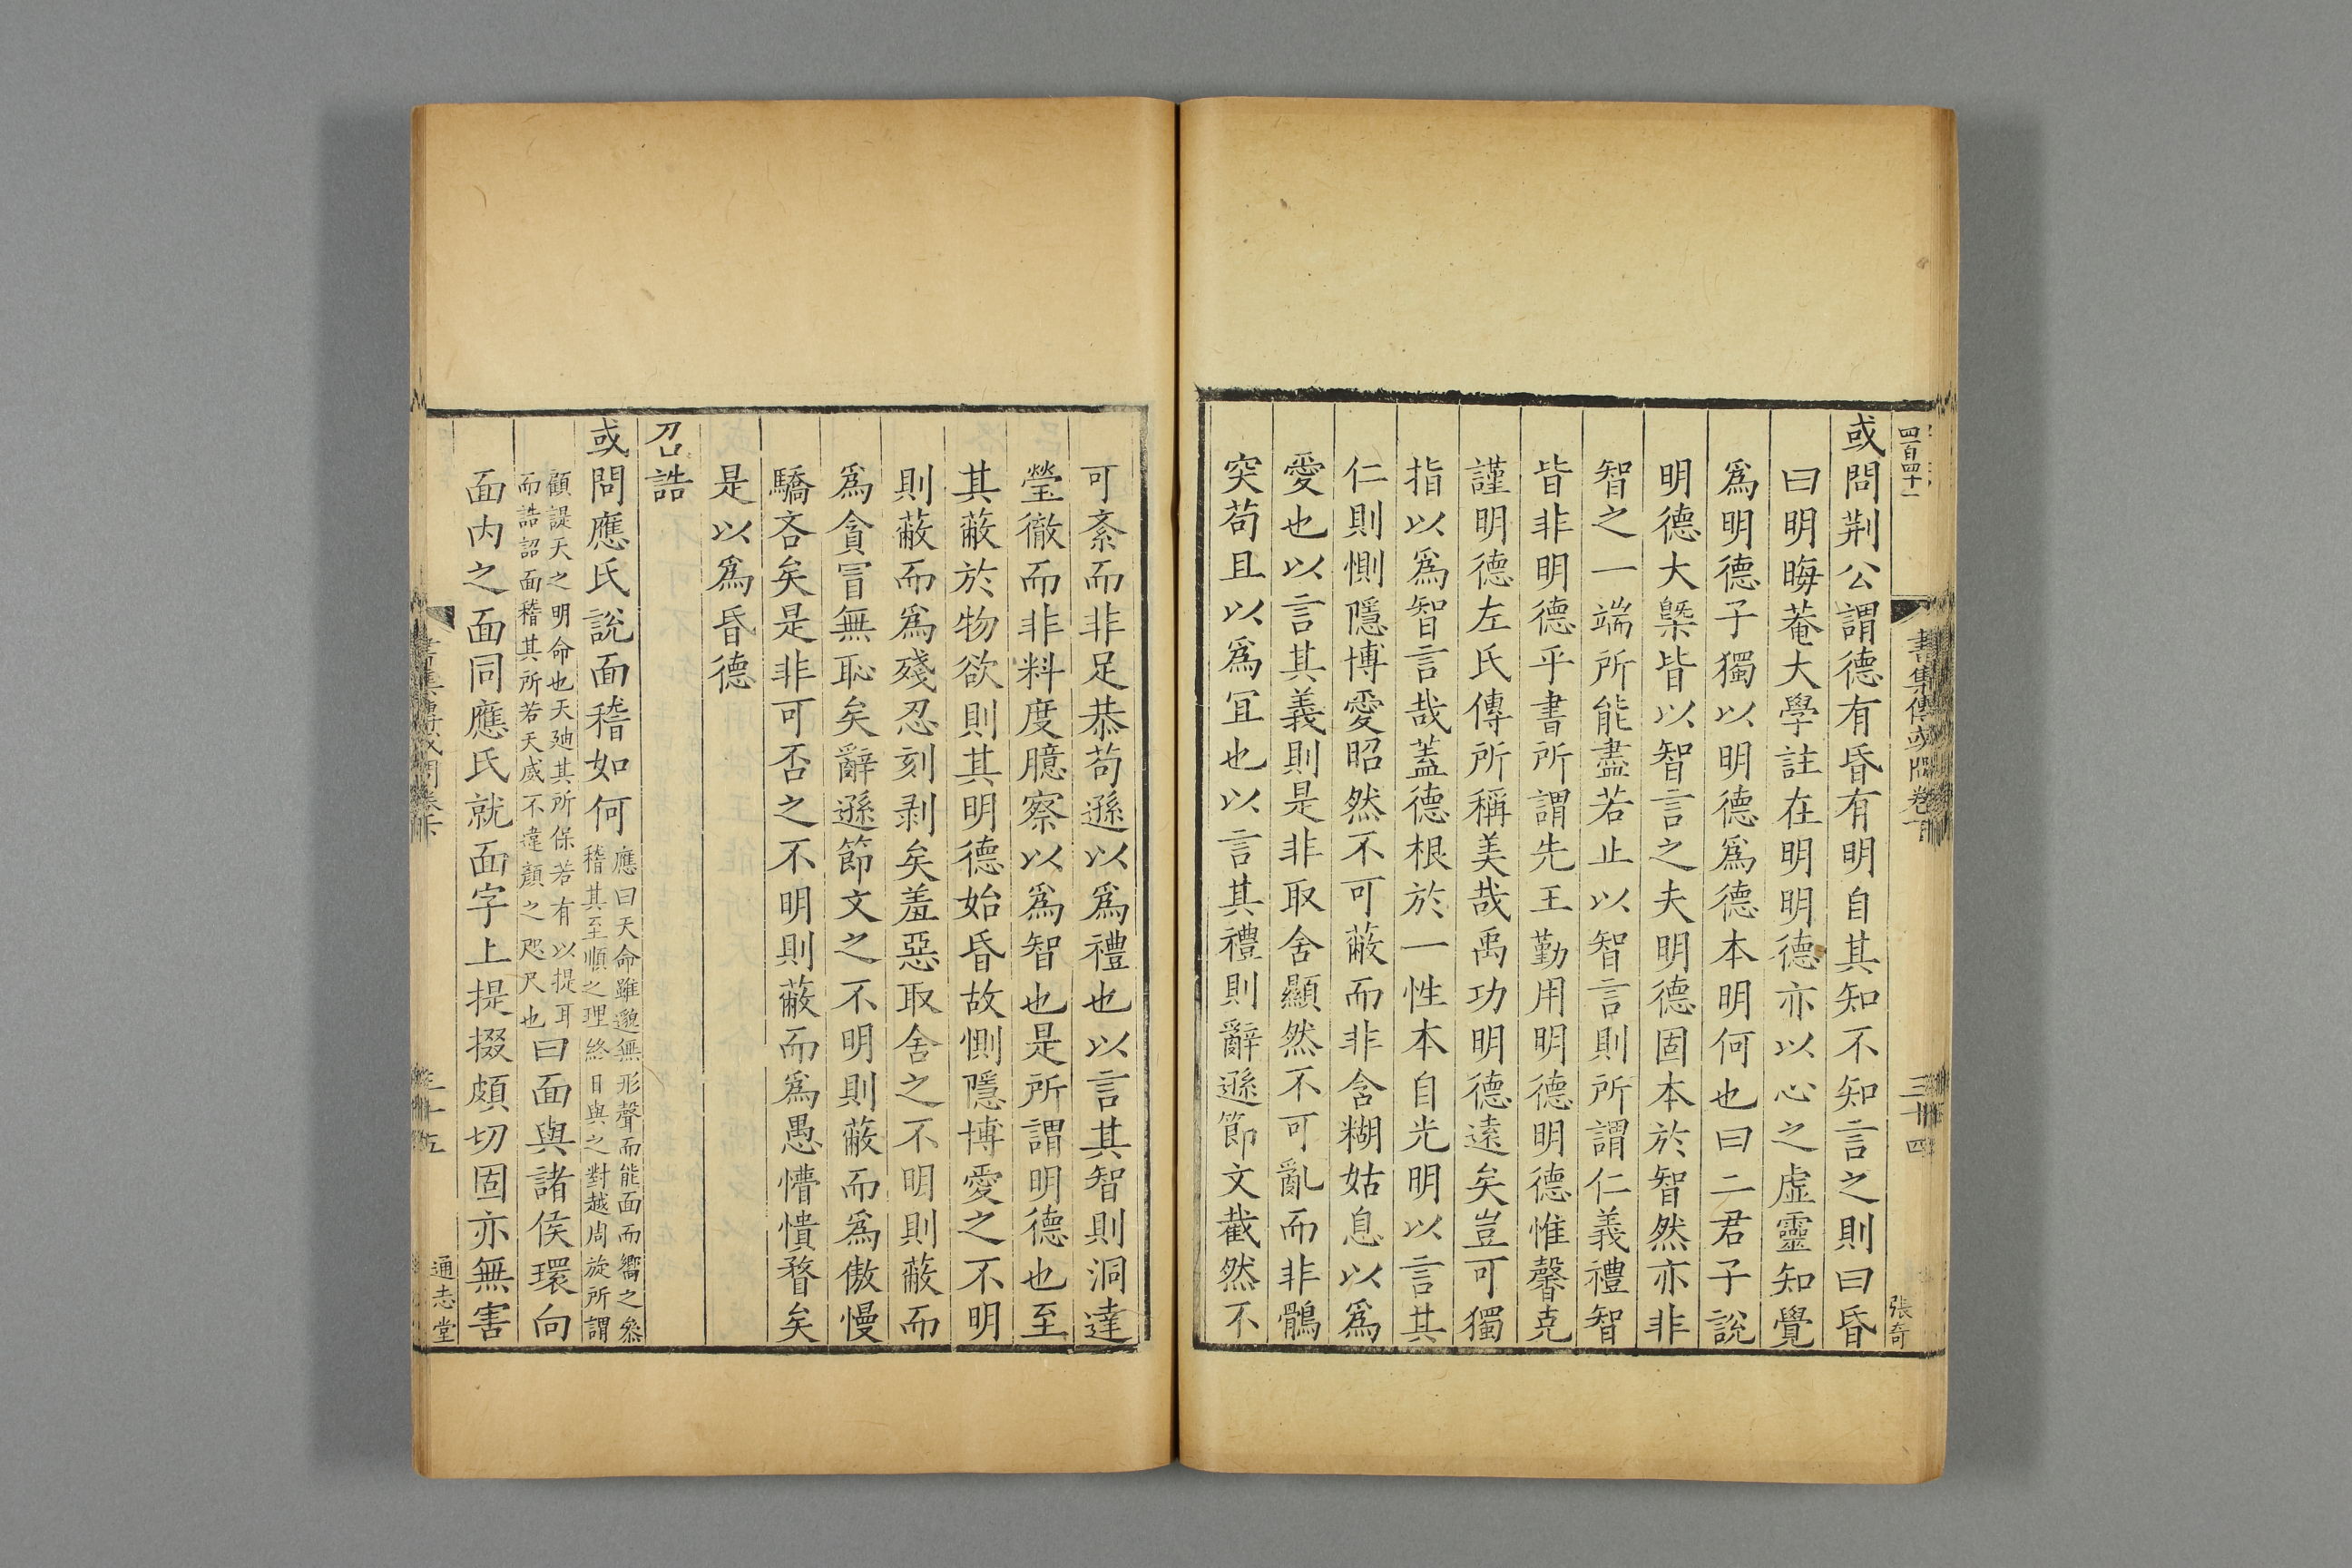 四百四十一
書集傳或問卷下
三十四
張奇
或問荆公謂德有昏有明自其知不知言之則曰昏
曰明晦菴大學註在明明德亦以心之虛靈知覺
爲明德子獨以明德爲德本明何也曰二君子說
明德大槩皆以智言之夫明德固本於智然亦非
智之一端所能盡若止以智言則所謂仁義禮智
皆非明德乎書所謂先王勤用明德明德惟馨克
謹明德左氏傳所稱美哉禹功明德遠矣豈可獨
指以爲智言哉蓋德根於一性本自光明以言其
仁則惻隱博愛昭然不可蔽而非含糊姑息以爲
愛也以言其義則是非取舍顯然不可亂而非鶻
突苟且以爲宜也以言其禮則辭遜節文截然不
可紊而非足恭苟遜以爲禮也以言其智則洞達
瑩徹而非料度臆察以爲智也是所謂明德也至
其蔽於物欲則其明德始昏故惻隱博愛之不明
則蔽而爲殘忍刻剥矣羞惡取舍之不明則蔽而
爲貪冒無恥矣辭遜節文之不明則蔽而爲傲慢
驕吝矣是非可否之不明則蔽而爲愚懵憒瞀矣
是以爲昏德
召誥
或問應氏說面稽如何
應曰天命雖邈無形聲而能面而嚮之叅
稽其至順之理終日與之對越周旋所謂
顧諟天之明命也天廸其所保若有以提耳
而誥詔面稽其所若天威不違顏之咫尺也
曰面與諸侯環向
面内之面同應氏就面字上提掇頗切固亦無害
三十五
通志堂